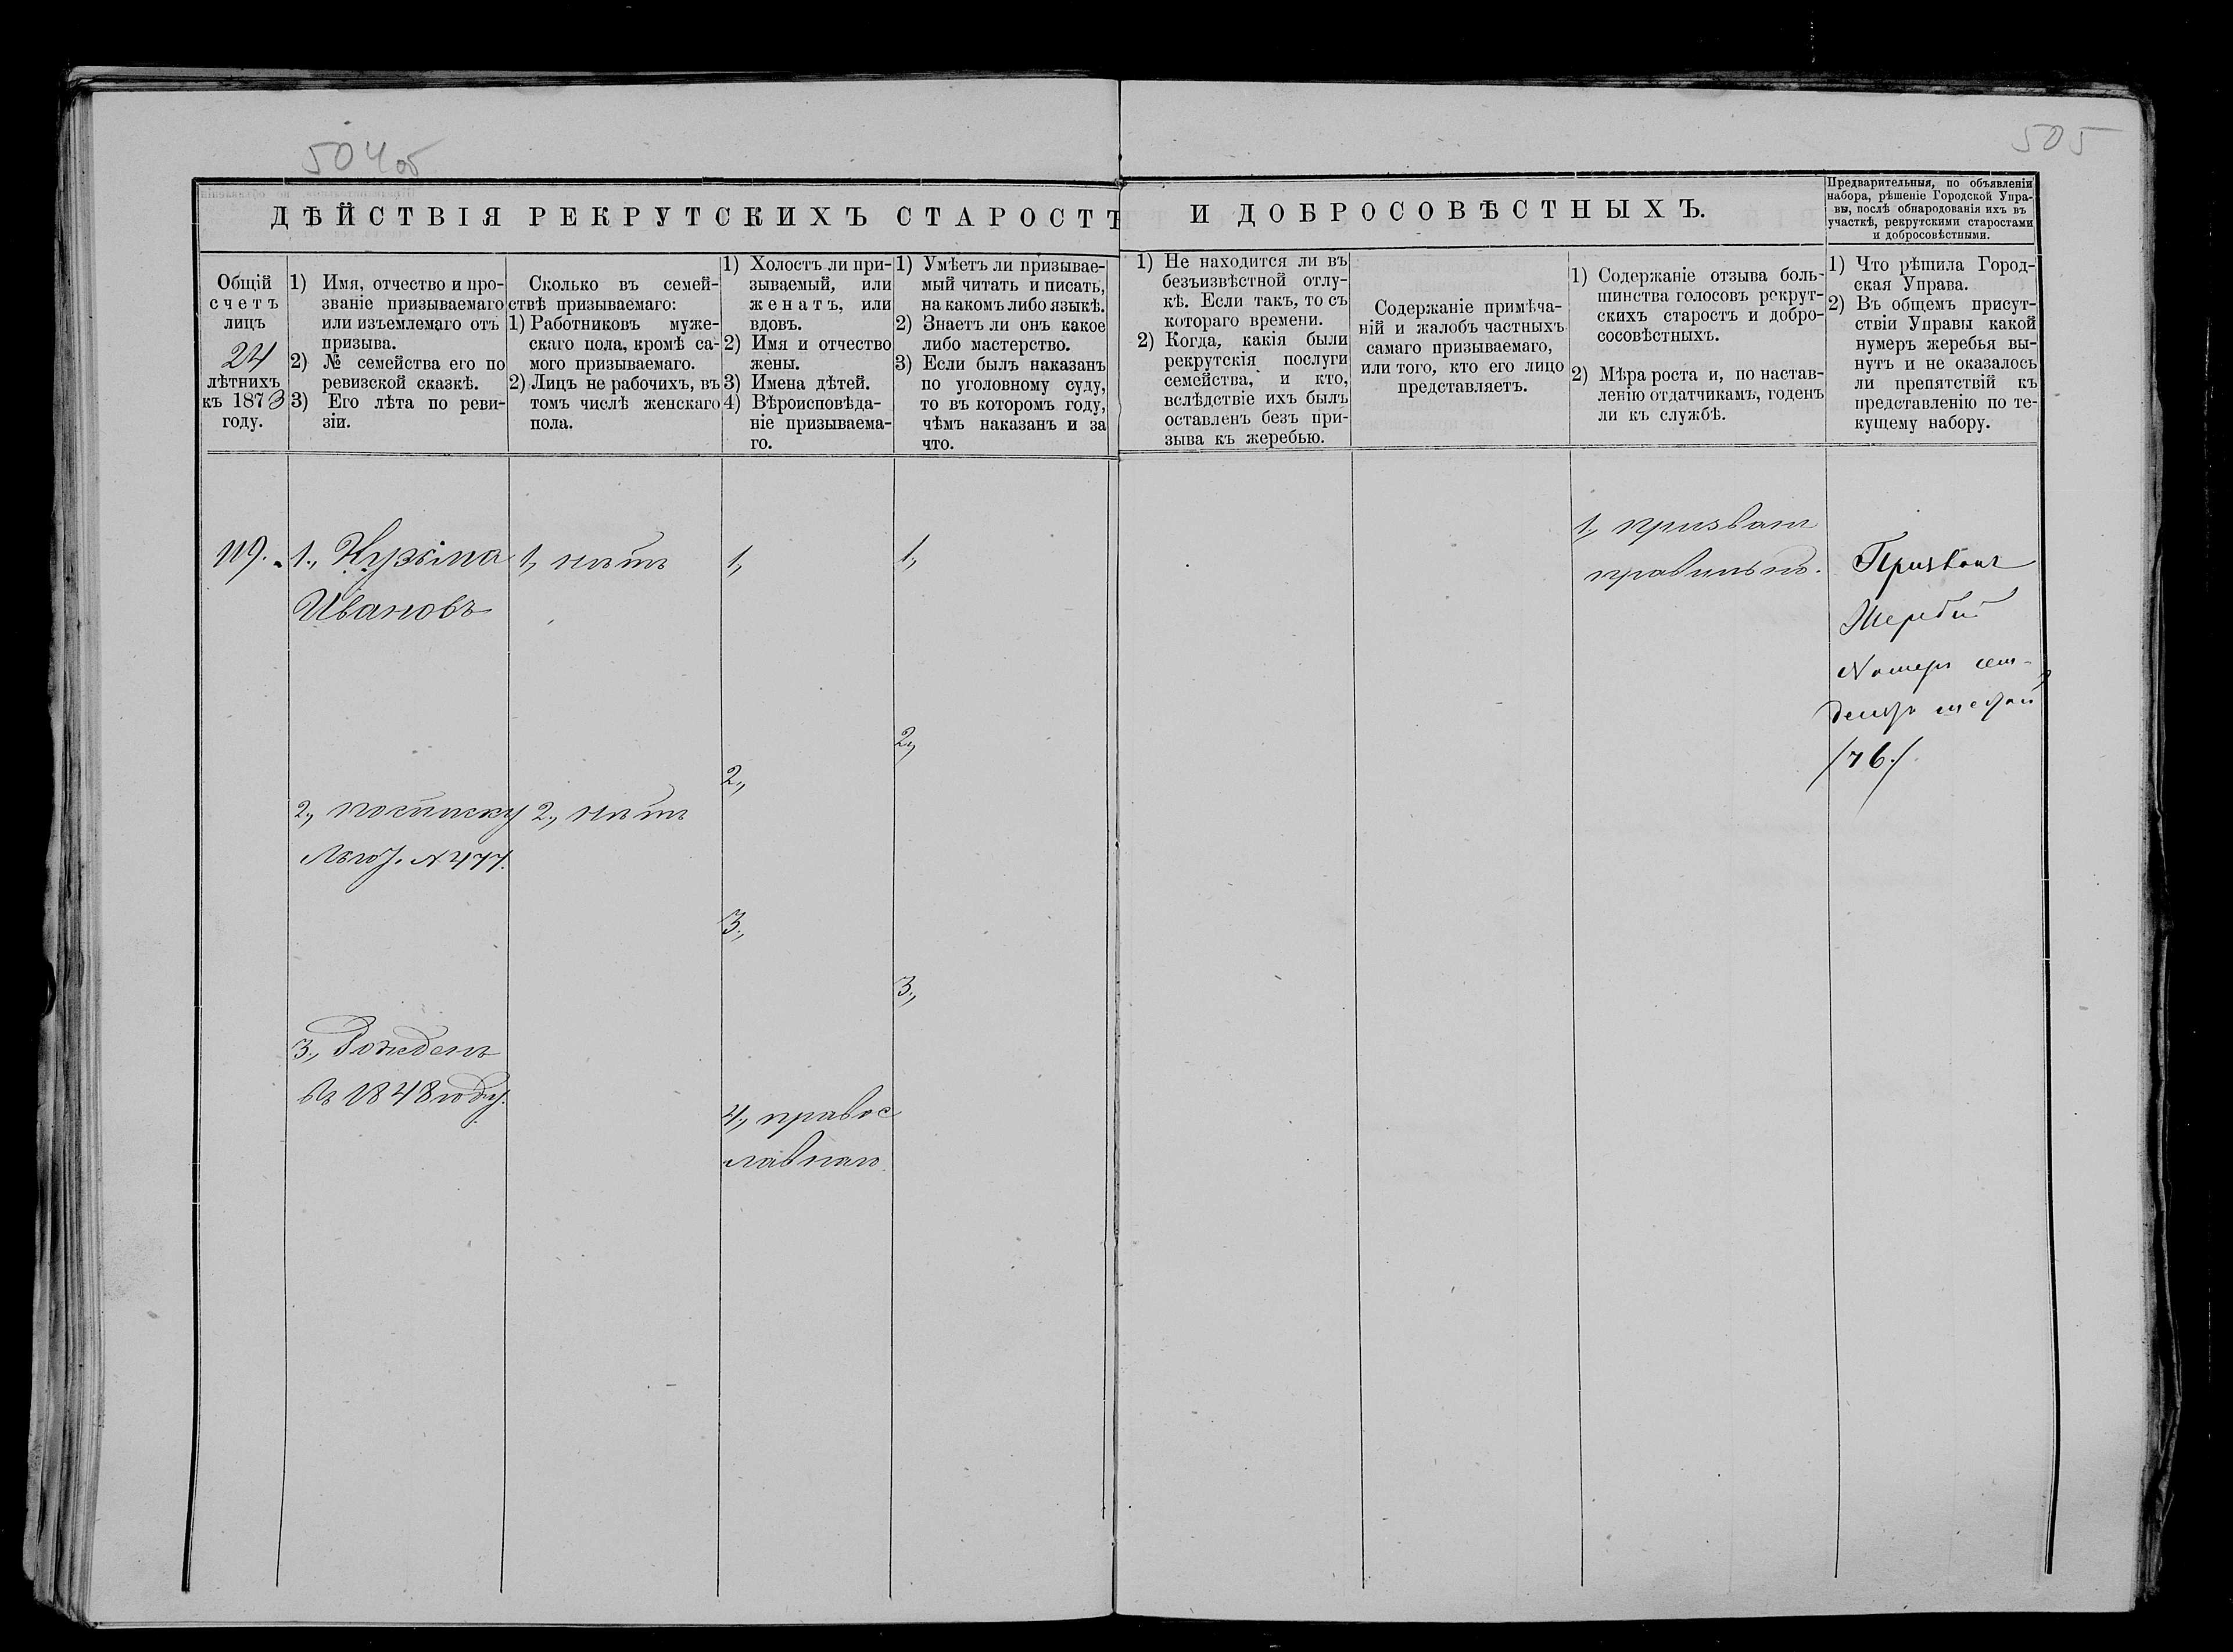 504об
505
ДѢЙСТВІЯ РЕКРУТСКИХЪ СТАРОСТЪ И ДОБРОСОВѢСТНЫХЪ.
Предварительныя, по объявленіи
набора, рѣшеніе Городской Упра-
вы, послѣ обнародованія ихъ въ
участкѣ, рекрутскими старостами
и добросовѣстными.
Общій
счетъ
лицъ
24
лѣтнихъ
къ 1873
году.
1) Имя, отчество и про-
званіе призываемаго
или изъемлемаго отъ
призыва.
2) № семейства его по
ревизской сказкѣ.
3) Его лѣта по реви-
зіи.
Сколько въ семей-
ствѣ призываемаго:
1) Работниковъ муже-
скаго пола, кромѣ са-
мого призываемаго.
2) Лицъ не рабочихъ, въ
томъ числѣ женскаго
пола.
1) Холостъ ли при-
зываемый, или
женатъ, или
вдовъ.
2) Имя и отчество
жены.
3) Имена дѣтей.
4) Вѣроисповѣда-
ніе призываема-
го.
1) Умѣетъ ли призывае-
мый читать и писать,
на какомъ либо языкѣ.
2) Знаетъ ли онъ какое
либо мастерство.
3) Если былъ наказанъ
по уголовному суду,
то въ которомъ году,
чѣмъ наказанъ и за
что.
1) Не находится ли въ
безъизвѣстной отлу-
кѣ. Если такъ, то съ
котораго времени.
2) Когда, какія были
рекрутскія послуги
семейства, и кто,
вслѣдствіе ихъ былъ
оставленъ безъ при-
зыва къ жеребью.
Содержаніе примѣча-
ній и жалобъ частныхъ
самаго призываемаго,
или того, кто его лицо
представляетъ.
1) Содержаніе отзыва боль-
шинства голосовъ рекрут-
скихъ старостъ и добро-
сосовѣстныхъ.
2) Мѣра роста и, по настав-
ленію отдатчикамъ, годенъ
ли къ службѣ.
1) Что рѣшила Город-
ская Управа.
2) Въ общемъ присут-
ствіи Управы какой
нумеръ жеребья вы-
нутъ и не оказалось
ли препятствій къ
представленію по те-
кущему набору.
119.
1., Кузьма
Ивановъ
2., посписку
№ 477.
3., Рожденъ
въ 1848 году.
1, нѣтъ
2., нѣтъ
1,
2.,
3.,
4., правос
лавнаго
1.,
2.,
3.,
1., призванъ
правильно.
Призванъ
Жеребій
Номеръ сем-
десятъ шестой
/76./